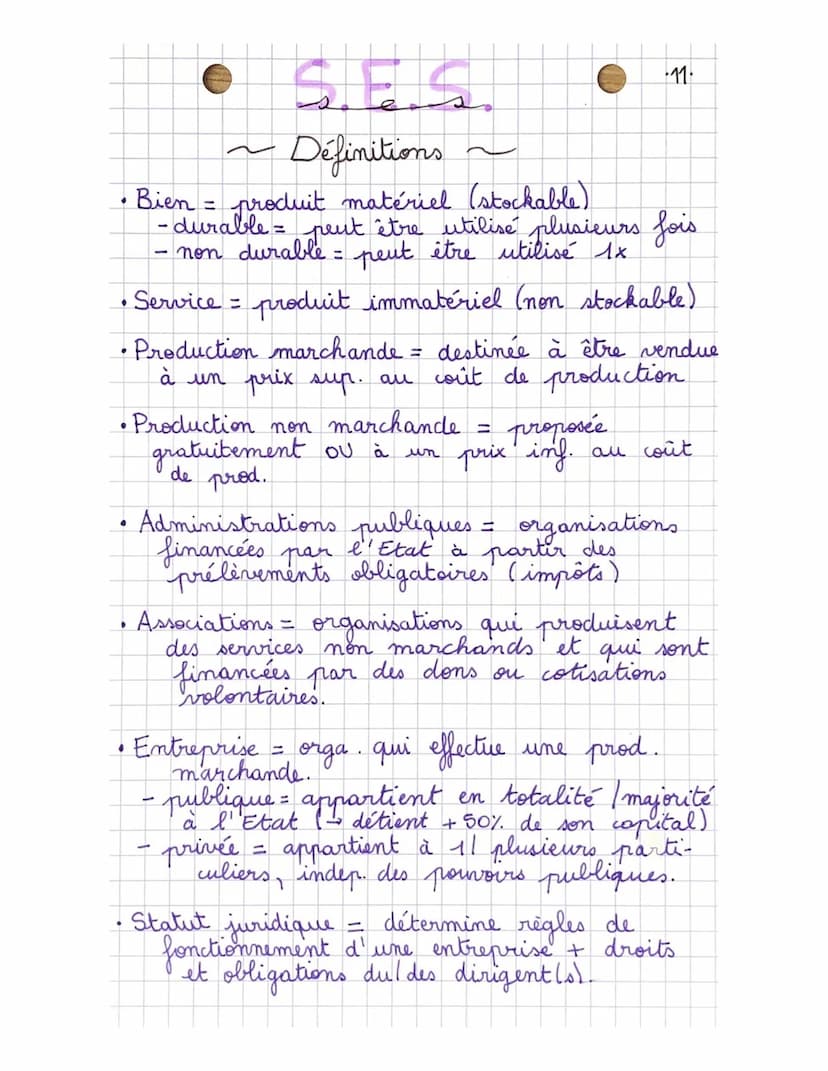 ·11·
S.E.S.
s. e. s.
~ Définitions ~
• Bien = produit matériel (stockable)
- durable = peut être utilisé plusieurs fois
- non durable = peut être utilisé 1x
• Service = produit immatériel (non stockable)
• Production marchande = destinée à être vendue
à un prix sup. au coût de production
• Production non marchande = proposée
gratuitement OU à un prix inf. au coût
de prod.
• Administrations publiques = organisations
financées par l'Etat à partir des
prélèvements obligatoires (impôts)
• Associations = organisations qui produisent
des services non marchands et qui sont
financées par des dons ou cotisations
volontaires.
• Entreprise = orga. qui effectue une prod.
marchande.
- publique = appartient en totalité / majorité
à l'Etat (→ détient + 50% de son capital)
- privée = appartient à 1/ plusieurs parti-
culiers, indep. des pouvoirs publiques.
• Statut juridique = détermine règles de
fonctionnement d'une entreprise + droits
et obligations du/des dirigent(s).